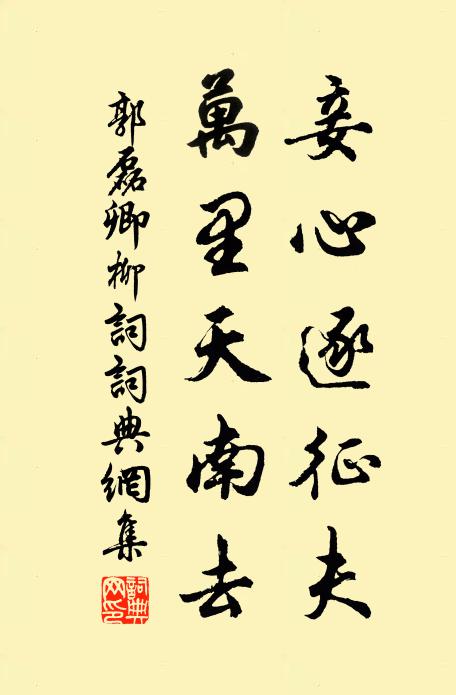 妾心逐征夫
萬里天南去
郭磊卿柳詞詞典網集
詞典网印